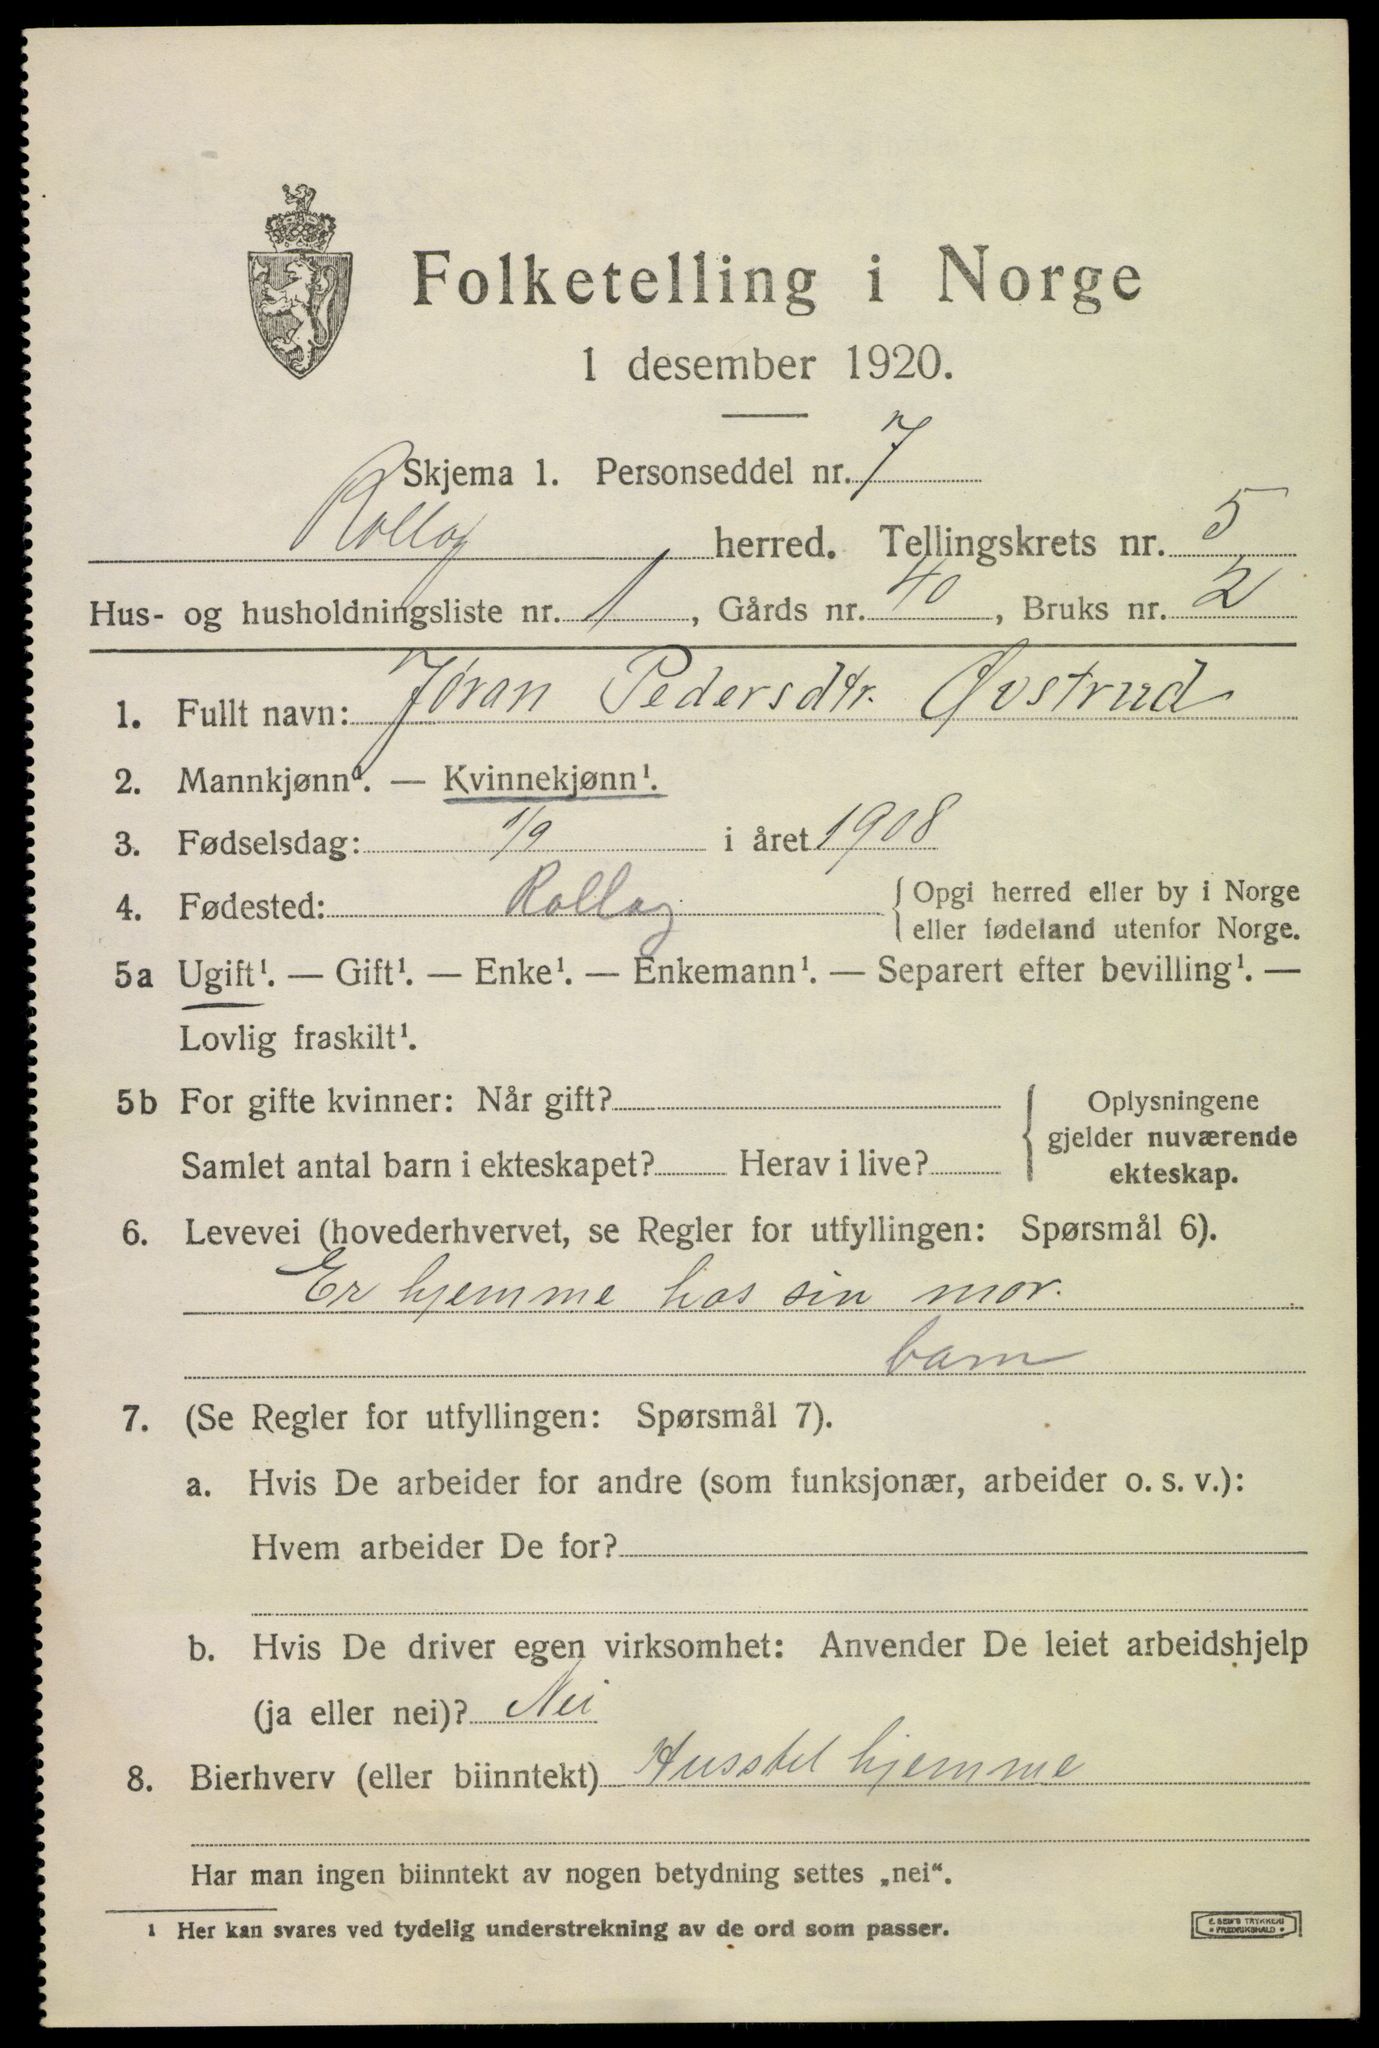 Folketelling i Norge
1 desember 1920.
Skjema 1. Personseddel nr. 7
Rollag herred. Tellingskrets nr. 5
Hus- og husholdningsliste nr. 1, Gårds nr. 40, Bruks nr. 2
1. Fullt navn: Jøran Pedersdtr. Øvstrud
2. Mannkjønn¹. — Kvinnekjønn¹.
3. Fødselsdag: 1/9 i året 1908
4. Fødested: Rollag { Opgi herred eller by i Norge
eller fødeland utenfor Norge.
5a Ugift¹. — Gift¹. — Enke¹. — Enkemann¹. — Separert efter bevilling¹. —
Lovlig fraskilt¹.
5b For gifte kvinner: Når gift? { Oplysningene
gjelder nuværende
Samlet antal barn i ekteskapet? Herav i live? ekteskap.
6. Levevei (hovederhvervet, se Regler for utfyllingen: Spørsmål 6).
Er hjemme hos sin mor.
barn
7. (Se Regler for utfyllingen: Spørsmål 7).
a. Hvis De arbeider for andre (som funksjonær, arbeider o. s. v.):
Hvem arbeider De for?
b. Hvis De driver egen virksomhet: Anvender De leiet arbeidshjelp
(ja eller nei)? Nei
8. Bierhverv (eller biinntekt) Husstel hjemme
Har man ingen biinntekt av nogen betydning settes „nei“.
¹ Her kan svares ved tydelig understrekning av de ord som passer.
E. SEM'S TRYKKERI
* FREDRIKSHALD *